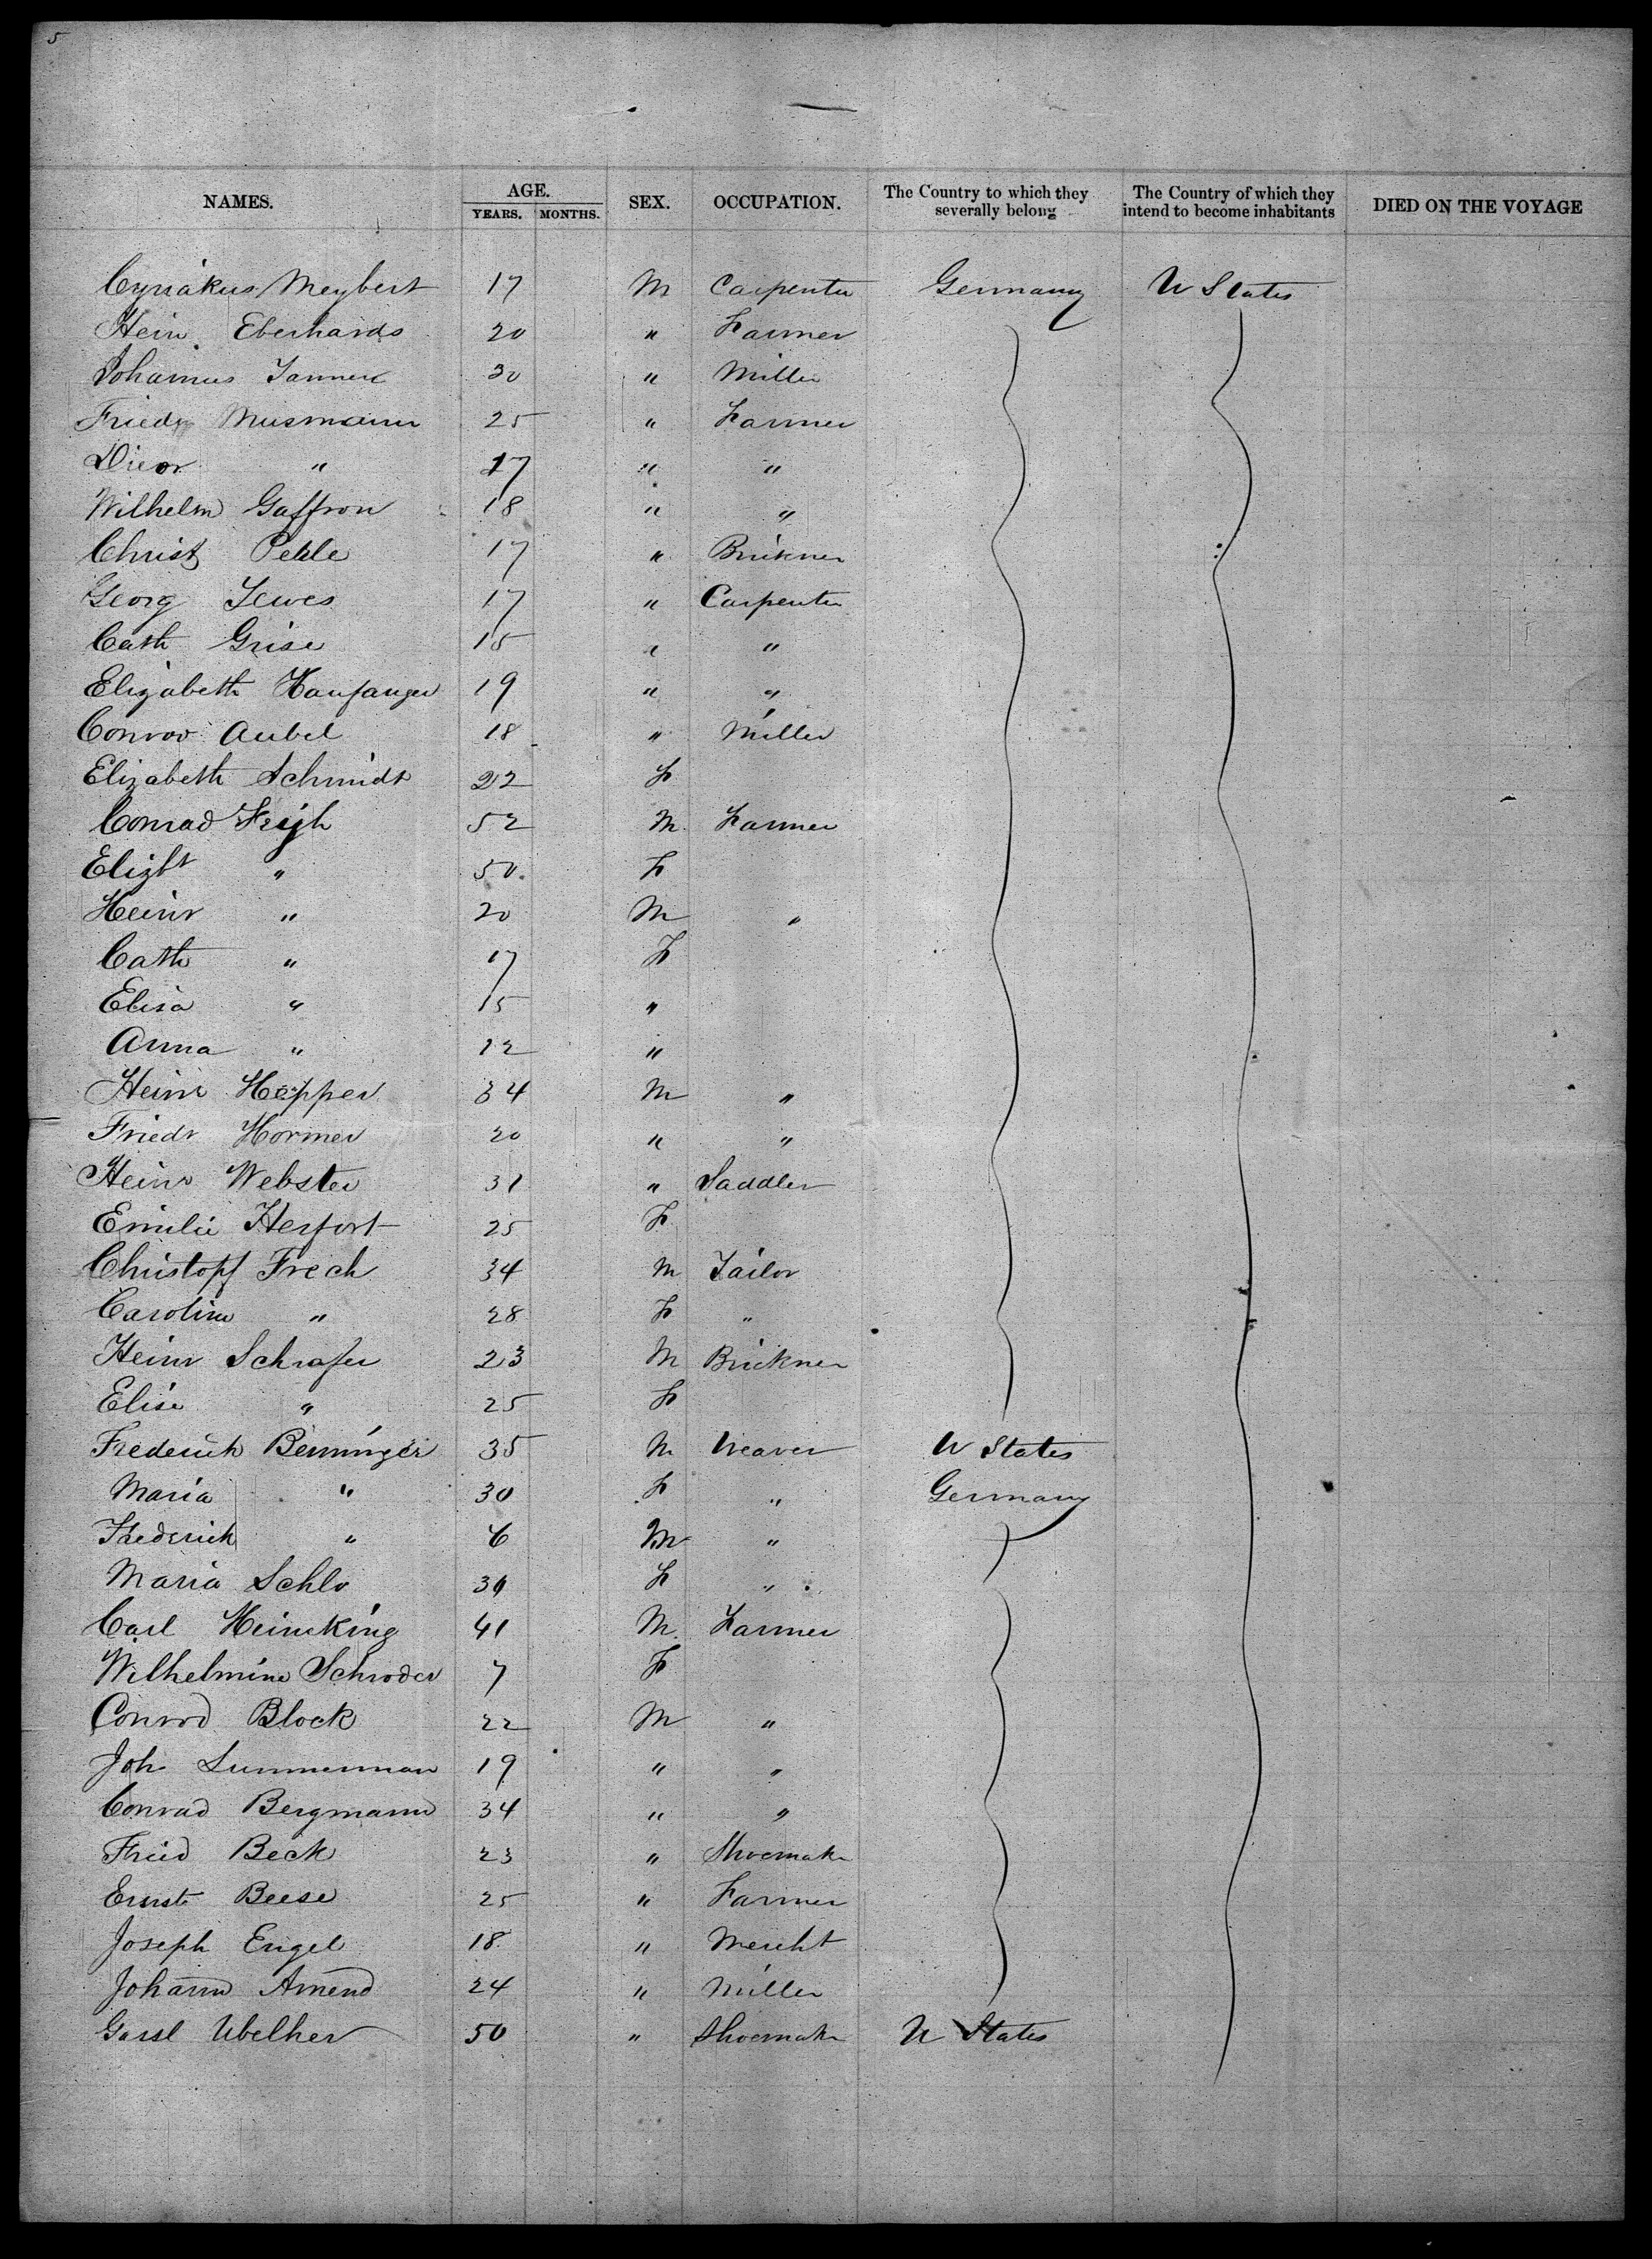 5
NAMES. AGE. SEX. OCCUPATION. The Country to which they severally belong The Country of which they intend to become inhabitants DIED ON THE VOYAGE
YEARS. MONTHS.
Cyriakus Meybert 17 M Carpenter Germany U States
Heinr. Eberhards 20 " Farmer
Johannes 30 " Miller
Friedr Musmann 25 " Farmer
" 17 " "
Wilhelm Gaffron 18 " "
Christ Pehle 17 " Brickner
Georg Jewes 17 " Carpenter
Cath Grise 15 " "
Elizabeth 19 " "
Conrad Aubel 18 " Miller
Elizabeth Schmidt 22 F
Conrad 52 M Farmer
Elizbt " 50 F
Heinr " 20 M "
Cath " 17 F
Elisa " 15 "
Anna " 12 "
Heinr Hepper 34 M "
Friedr Hormer 20 " "
Heinr Webster 31 " Saddler
Emilie Herfort 25 F
Christopf Frech 34 M Tailor
Caroline " 28 F "
Heinr Schrafer 23 M Brickner
Elise " 25 F
Frederich Benninger 35 M Weaver U States
Maria " 30 F " Germany
Frederich " 6 M "
Maria Schlo F "
Carl Heineking 41 M Farmer
Wilhelmine Schroder 7 F
Conrad Block 22 M "
Joh Summerman 19 " "
Conrad Bergmann 34 " "
Fried Beck 23 " Shoemakr
Ernst Beese 25 " Farmer
Joseph Engel 18 " Mercht
Johann Amend 24 " Miller
Ubelher 50 " Shoemakr U States